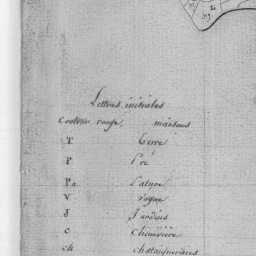 Lettres initiales
Couleur rouge, maisons
T Terre
P Pré
Pa Pature
V Vigne
J Jardins
C Chenevière
ch chataigneraies